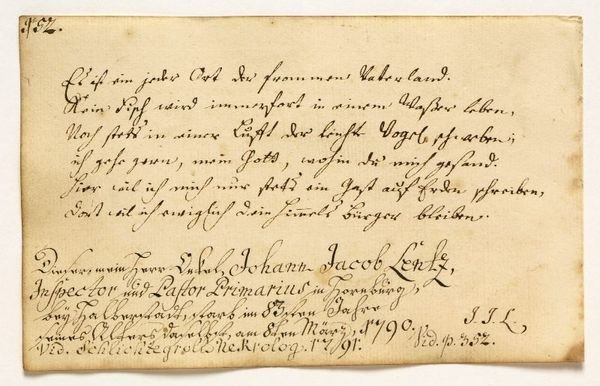 p. 52.
Es ist ein jeder Ort der frommen Vaterland.
Kein Fisch wird immerfort in einem Waßer leben,
Noch stets in einer Lufft der leichte Vogel schweben;
ich gehe gern, mein Gott, wohin du mich gesand.
hier will ich mich nur stets ein Gast auf Erden schreiben,
dort will ich ewiglich dein Himmels Bürger bleiben.
Dieser, mein Herr Onkel, Johann Jacob Lentz,
Inspector und Pastor Primarius in Hornburg,
bey Halberstadt, starb im 83sten Jahre
seines Alters daselbst, am 8ten März, 1790. J. J. L.
Vid. Schlichtegrolls Nekrolog. 1791. Vid. p. 352.